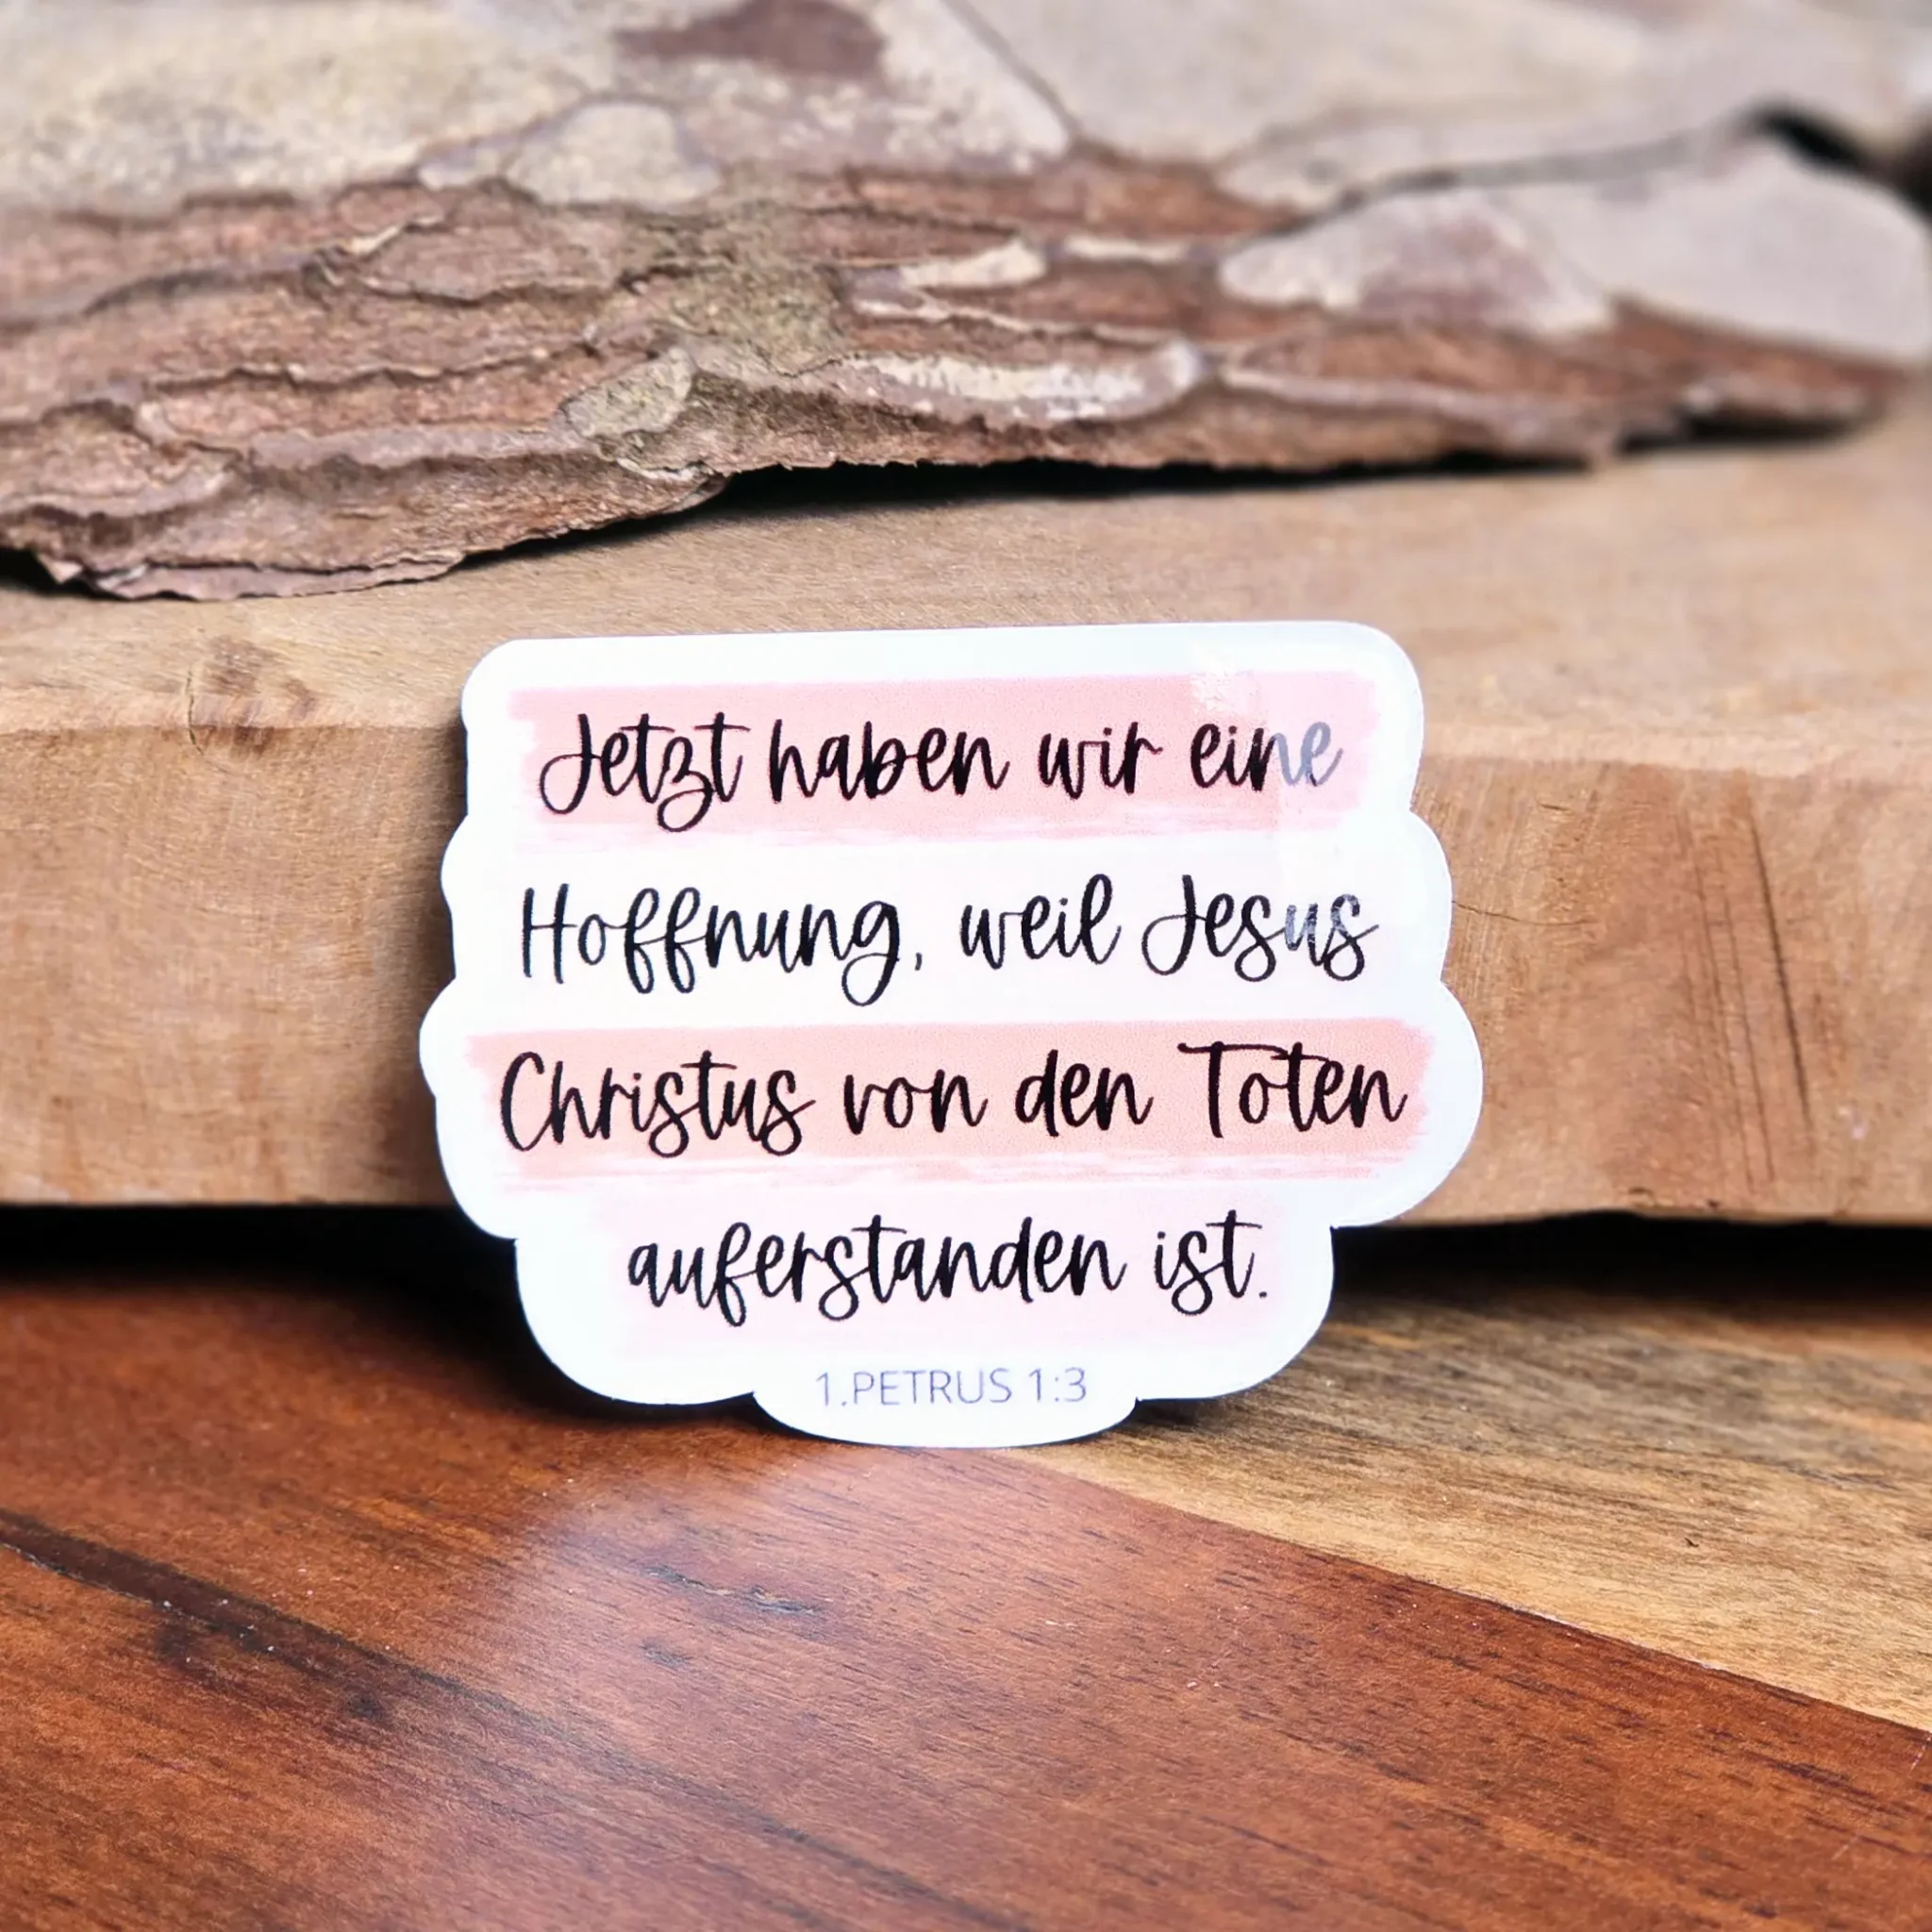 Jetzt haben wir eine
Hoffnung, weil Jesus
Christus von den Toten
auferstanden ist.
1.PETRUS 1:3